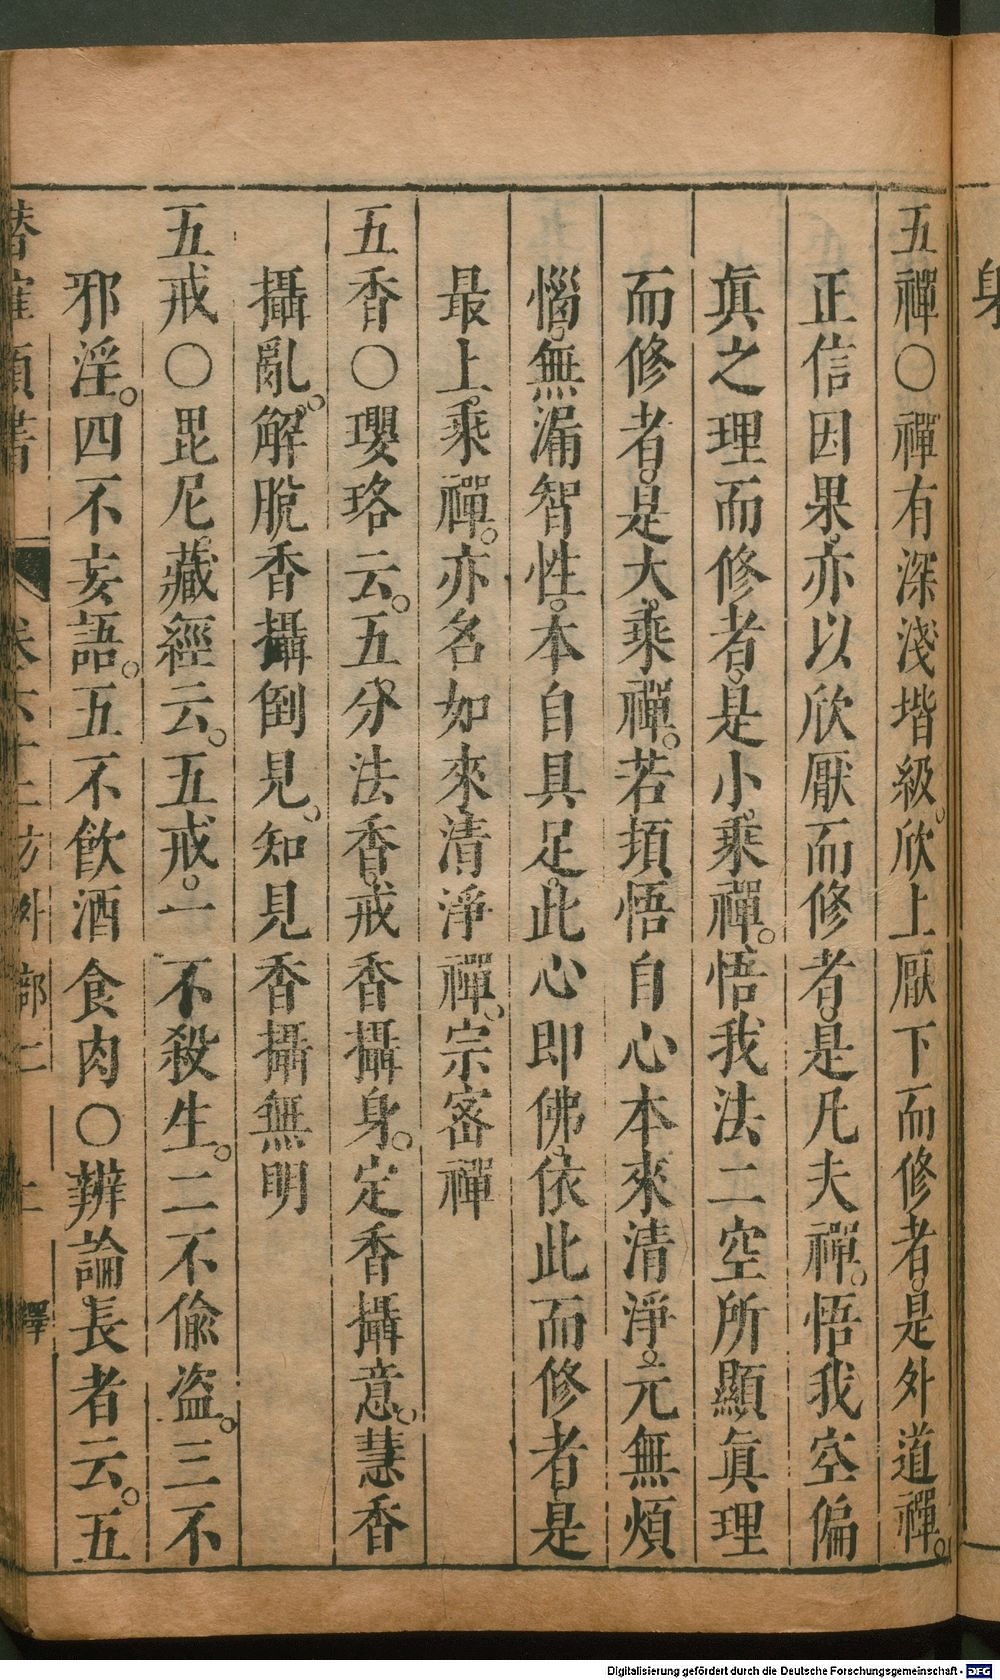 五禪〇禪有深淺堦級。欣上厭下而修者。是外道禪。
正信因果。亦以欣厭而修者。是凡夫禪。悟我空偏
眞之理而修者。是小乘禪。悟我法二空所顯眞理
而修者。是大乘禪。若頓悟自心本來清淨。元無煩
惱。無漏智性。本自具足。此心即佛。依此而修者。是
最上乘禪。亦名如來清淨禪。宗密禪
五香〇瓔珞云。五分法香。戒香攝身。定香攝意。慧香
攝亂。解脫香攝倒見。知見香攝無明
五戒〇毘尼藏經云。五戒。一不殺生。二不偸盜。三不
邪淫。四不妄語。五不飮酒食肉〇辨論。長者云。五
類書 卷六十三 方外部二 釋
Digitalisierung gefördert durch die Deutsche Forschungsgemeinschaft - DFG